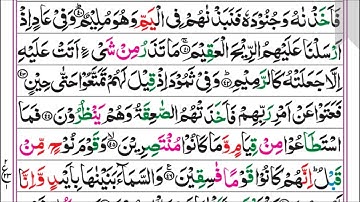 فَاَخَذْنٰهُ وَجُنُوْدَهٗ فَنَبَذْنٰهُمْ فِی الْیَمِّ وَهُوَ مُلِیْمٌ ؕ﴿۴۰﴾ وَفِیْ عَادٍ اِذْ
اَرْسَلْنَا عَلَیْهِمُ الرِّیْحَ الْعَقِیْمَ ۚ﴿۴۱﴾ مَا تَذَرُ مِنْ شَیْءٍ اَتَتْ عَلَیْهِ
اِلَّا جَعَلَتْهُ كَالرَّمِیْمِ ؕ﴿۴۲﴾ وَفِیْ ثَمُوْدَ اِذْ قِیْلَ لَهُمْ تَمَتَّعُوْا حَتّٰی حِیْنٍ ﴿۴۳﴾
فَعَتَوْا عَنْ اَمْرِ رَبِّهِمْ فَاَخَذَتْهُمُ الصّٰعِقَةُ وَهُمْ یَنْظُرُوْنَ ﴿۴۴﴾ فَمَا
اسْتَطَاعُوْا مِنْ قِیَامٍ وَّمَا كَانُوْا مُنْتَصِرِیْنَ ۙ﴿۴۵﴾ وَقَوْمَ نُوْحٍ مِّنْ
قَبْلُ ؕ اِنَّهُمْ كَانُوْا قَوْمًا فٰسِقِیْنَ ﴿۴۶﴾ وَالسَّمَآءَ بَنَیْنٰهَا بِاَیْىدٍ وَّاِنَّا